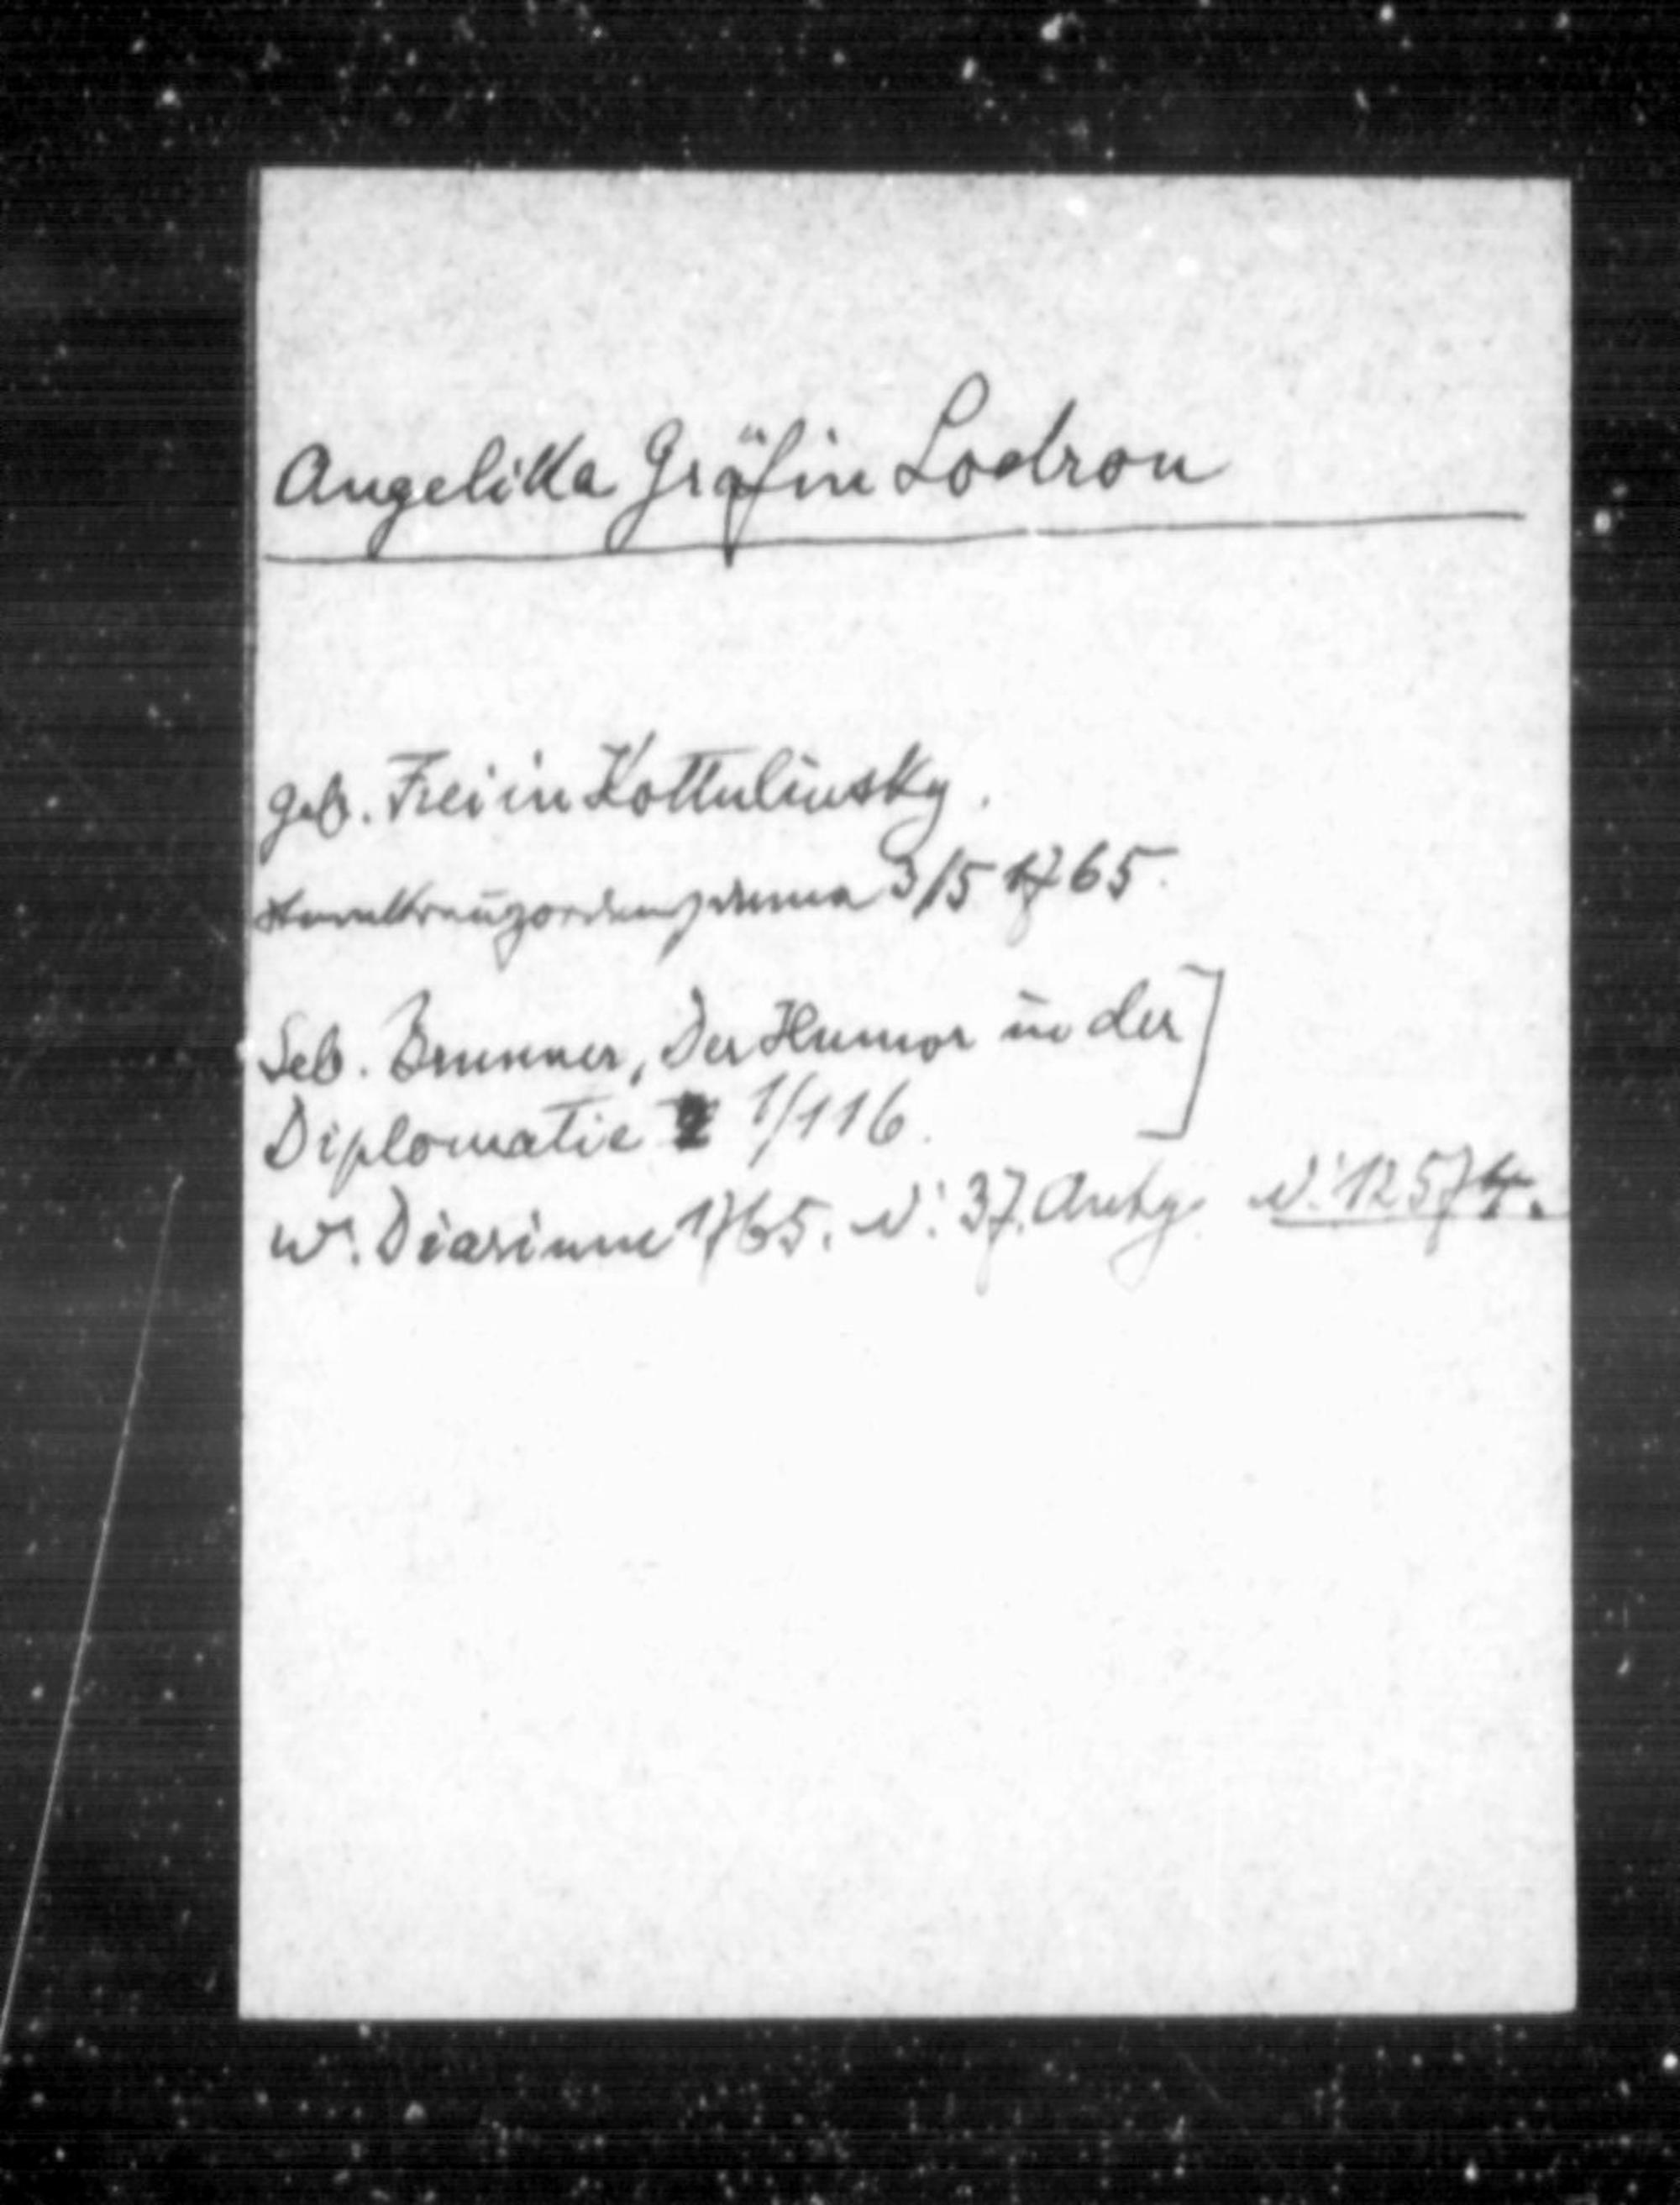 Angelika Gräfin Lodron
geb. Freiin Kottulinsky.
Sternkreuzordensdame 3/5 1765.
Seb. Brunner, Der Humor in der]
Diplomatie 1/116.
W. Diarium 1765. N: 37. Anhg. N: 12574.